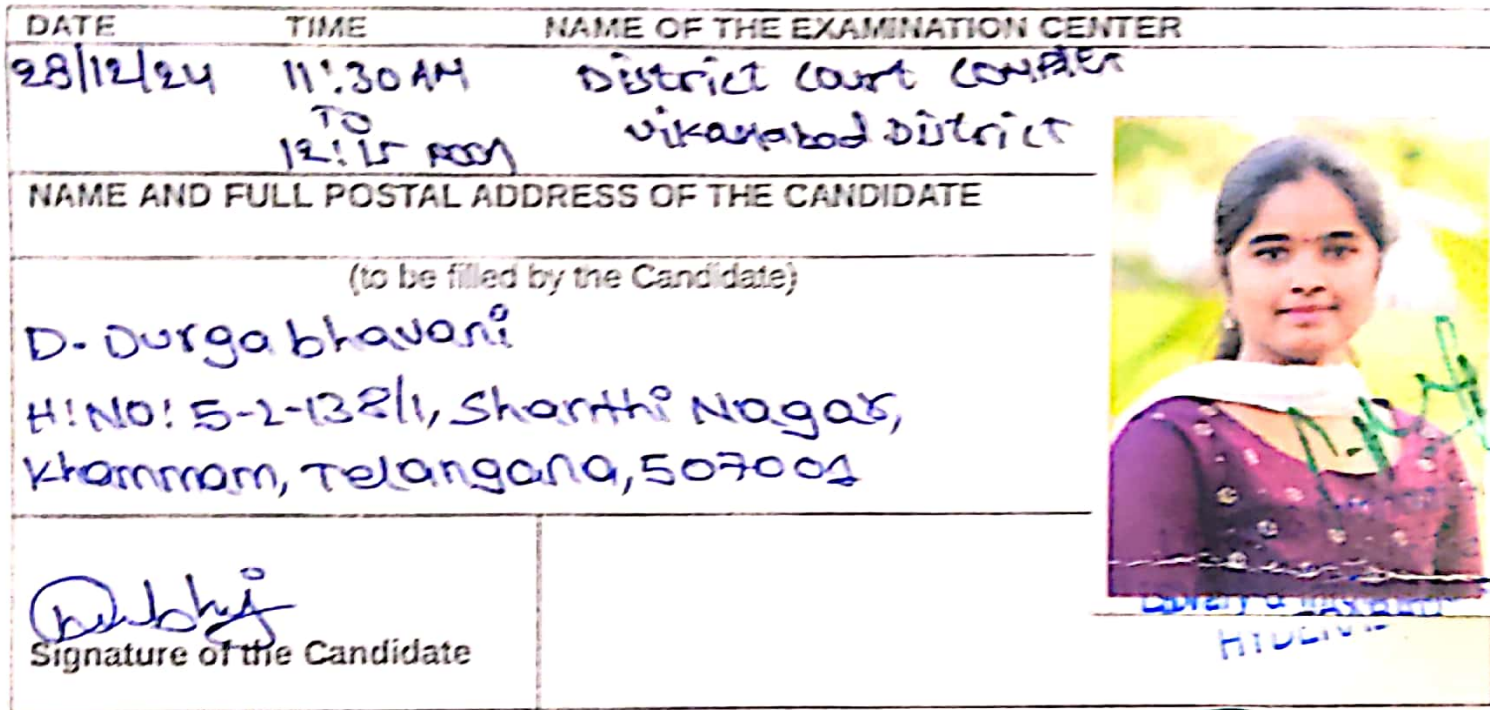 DATE TIME NAME OF THE EXAMINATION CENTER
28/12/24 11:30 AM District Court Complex
TO
12:15 noon Vikarabad District
NAME AND FULL POSTAL ADDRESS OF THE CANDIDATE
(to be filled by the Candidate)
D. Durga bhavani
H:NO: 5-2-138/1, Shanthi Nagar,
Khammam, Telangana, 507001
Signature of the Candidate